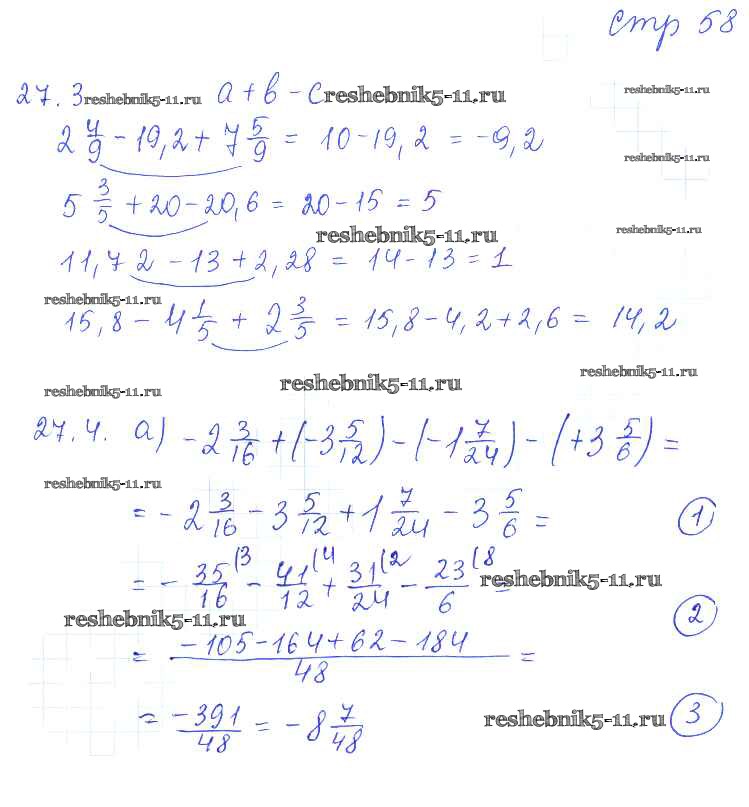 стр 58
27.3 reshebnik5-11.ru a + b - c reshebnik5-11.ru reshebnik5-11.ru
2 4/9 - 19,2 + 7 5/9 = 10 - 19,2 = -9,2
reshebnik5-11.ru
5 3/5 + 20 - 20,6 = 20 - 15 = 5
reshebnik5-11.ru reshebnik5-11.ru
11,72 - 13 + 2,28 = 14 - 13 = 1
reshebnik5-11.ru
15,8 - 4 1/5 + 2 3/5 = 15,8 - 4,2 + 2,6 = 14,2
reshebnik5-11.ru
reshebnik5-11.ru reshebnik5-11.ru
27.4. а) -2 3/16 + (-3 5/12) - (-1 7/24) - (+3 5/6) =
reshebnik5-11.ru
= -2 3/16 - 3 5/12 + 1 7/24 - 3 5/6 = 1
= - 35/16 (3 - 41/12 (4 + 31/24 (2 - 23/6 (8 = reshebnik5-11.ru
reshebnik5-11.ru 2
= -105-164+62-184/48 =
= -391/48 = -8 7/48 reshebnik5-11.ru 3